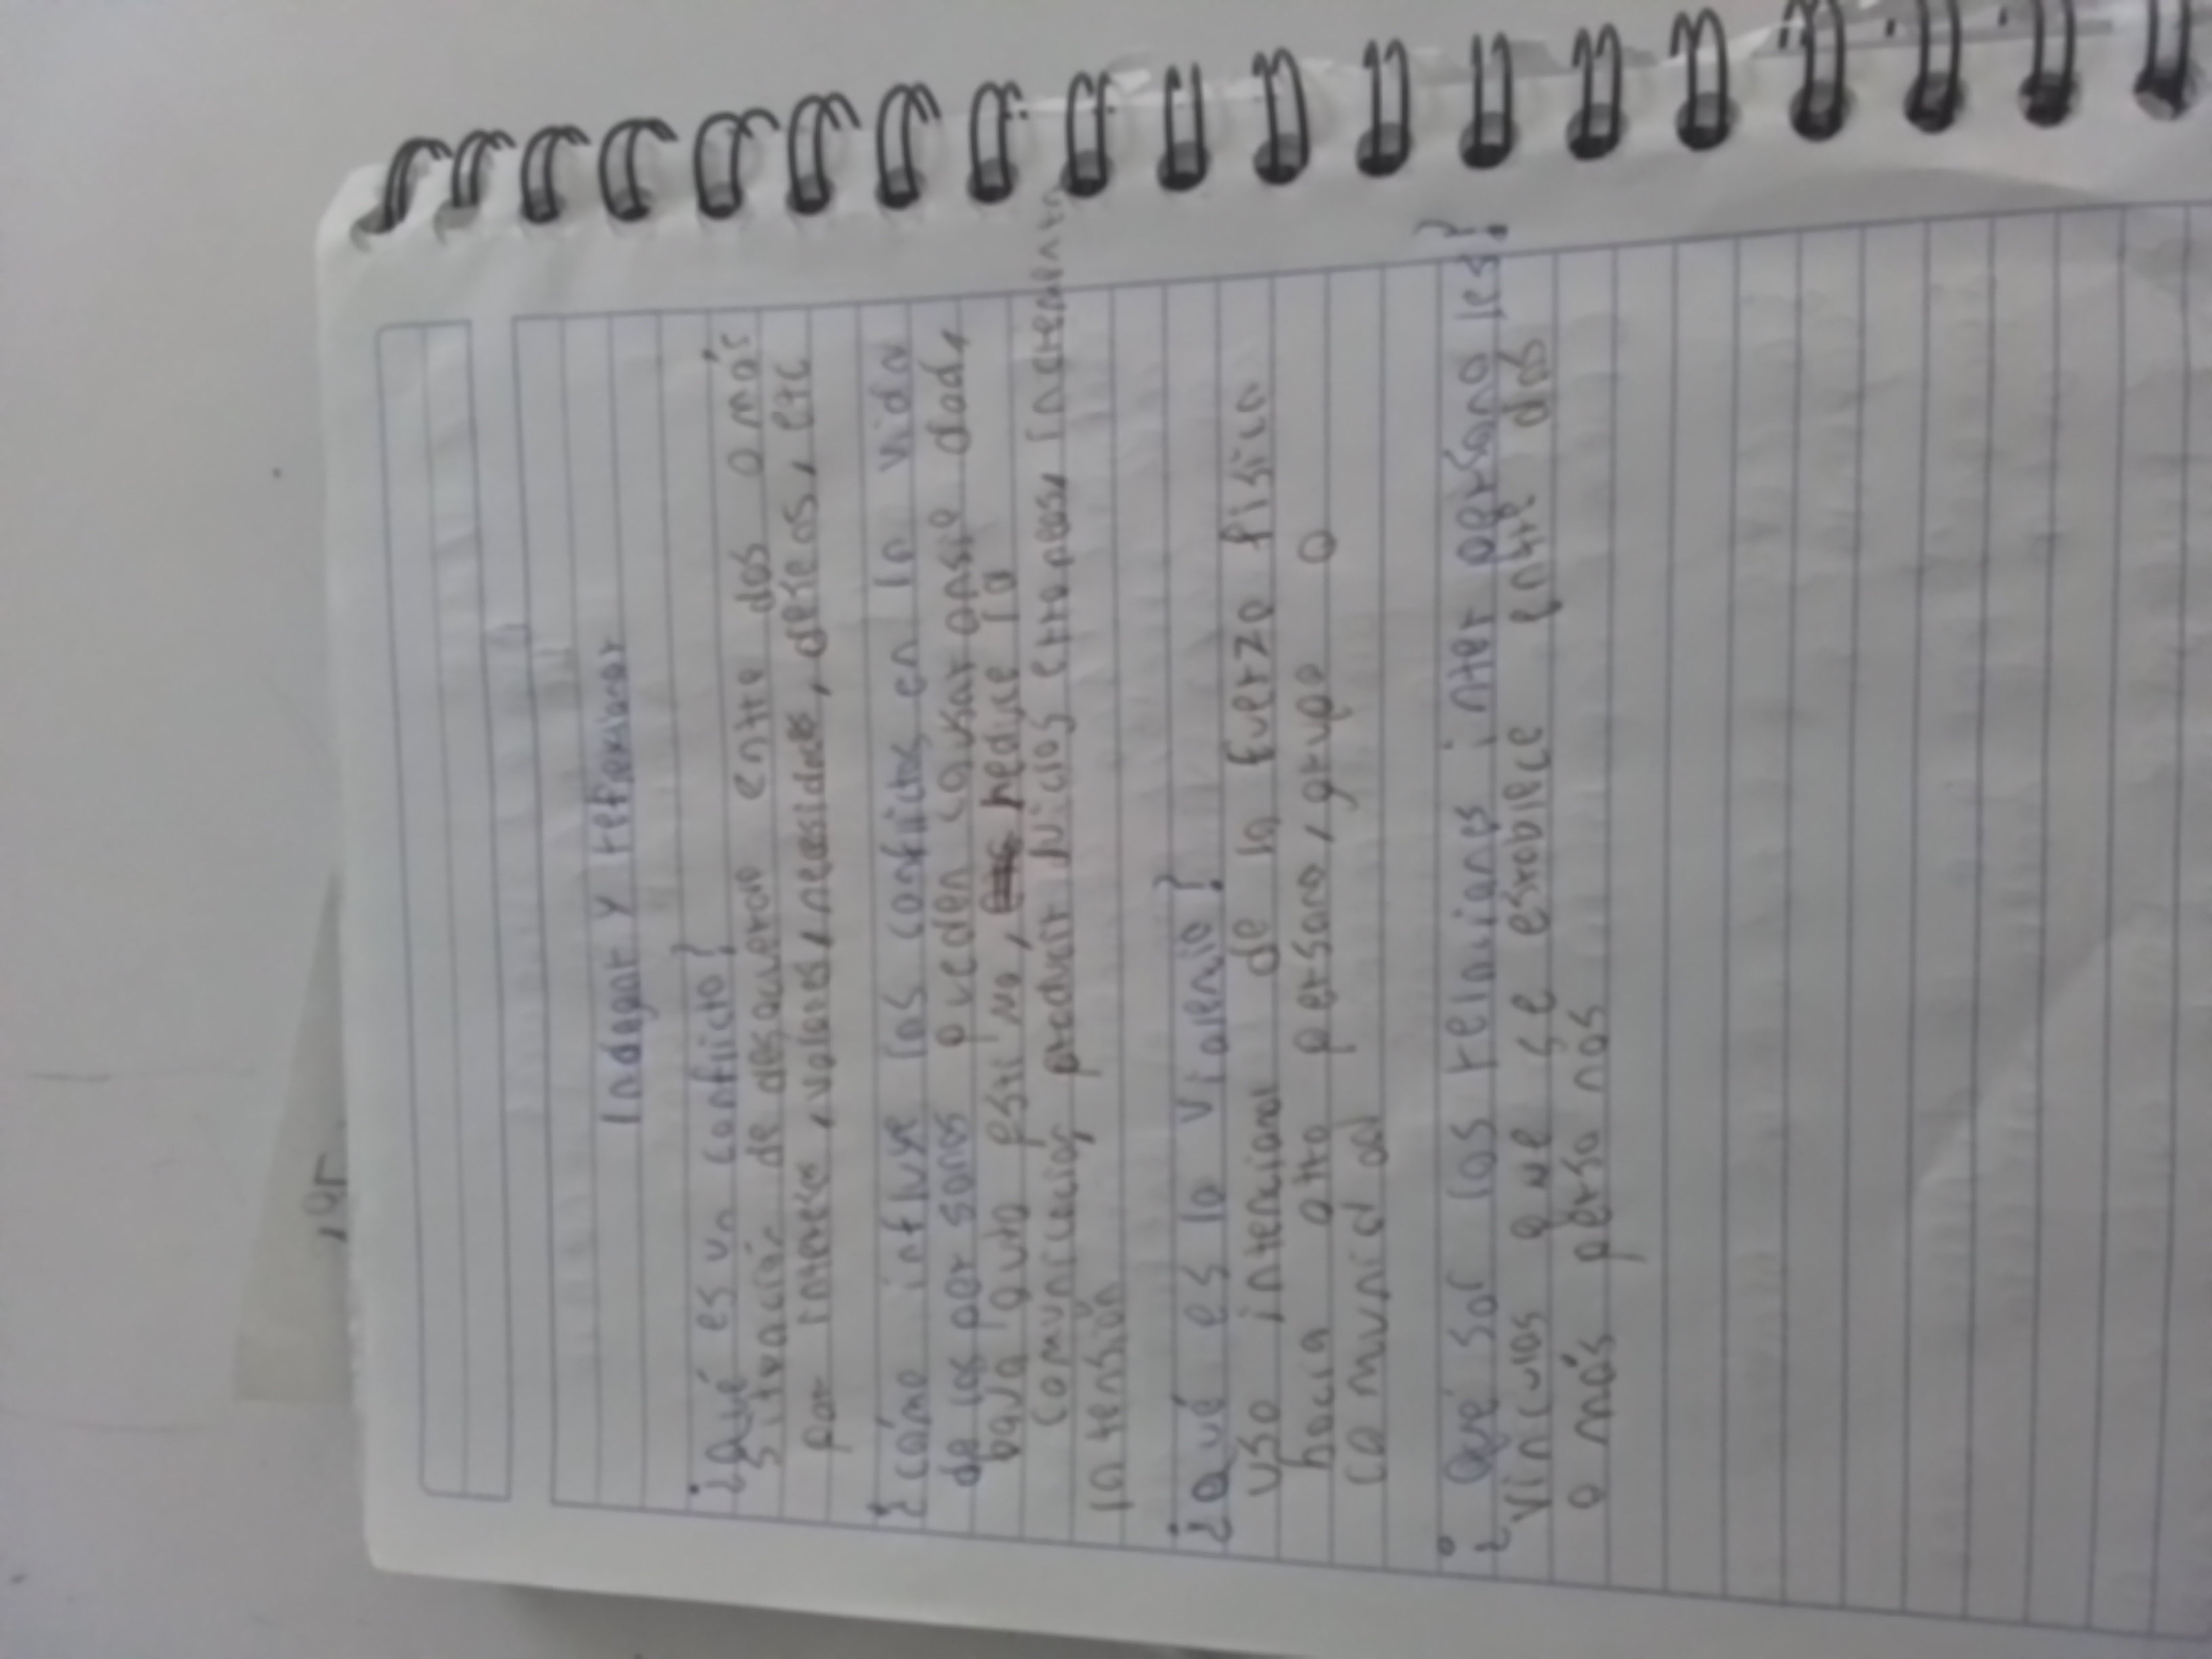 Indagar y refflexionar
¿Qué es un conflicto?
Situación de desacuerdo entre dos o más
por interese, valores, necesidades, deseos, etc
¿cómo influye los conflictos en la vida
de las personas pueden causar ansie dad,
baja auto esti ma, reduce la
comunicación, producir juicios erroneos, incrementa
la tensión
¿Qué es la violencia?
Uso intencional de la fuerza física
hacia otra persona, grupo o
comunidad
¿Qué son las relaciones inter personales?
Vinculos que se establece entre dos
o más perso nas